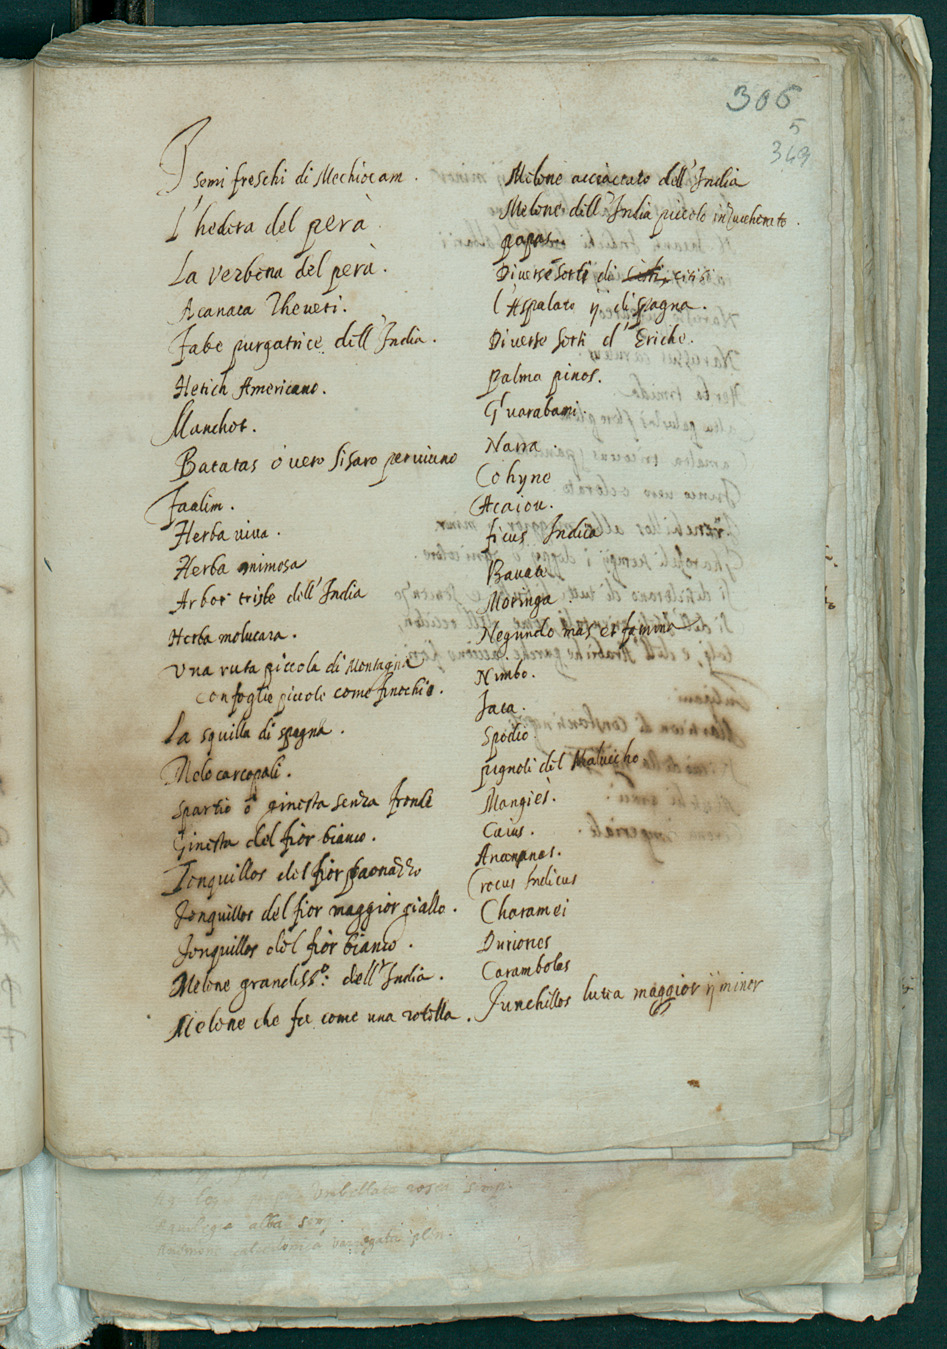 306
5
363
I semi freschi di Mechiocam.
L'hedera del perà.
La verbena del perà.
Acanaca Theveti.
Fabe purgatrice dell'India.
Hetich Americano.
Manhot.
Batatas ò vero sisaro peruviano
Faalim.
Herba viva.
Herba mimosa
Arbor triste dell'India
Herba molucara.
Una ruta piccola di Montagna
con foglie piccole come finochio.
La squilla di spagna.
Melocarcopali.
Spartio ò ginestra senza fronde
Ginestra del fior bianco.
Jonquillos del fior paonazzo
Jonquillos del fior maggior giallo.
Jonquillos del fior bianco.
Melone grandiss.º dell'India.
Melone che fa come una rotella.
Melone acciaccato dell'India
Melone dell'India piccolo inzuccherato.
papas
Diverse sorti di
l'Aspalato ij di spagna.
Diverse sorti d'Eriche.
Palma pinos.
Guarabami.
Narra.
Cohyne
Acaiou.
ficus Indica
Bavate
Moringa
Negundo mas et femina
Nimbo.
Jaca.
Spodio
pignoli del Maluccho
Mangies.
Caius.
Ananas.
Crocus Indicus
Charamei
Duriones
Carambolas
Junchillos lutea maggior ij minor
umbellato rosea semp.
Aquilegia alba semp.
Anemone calcedonica varregata plen.